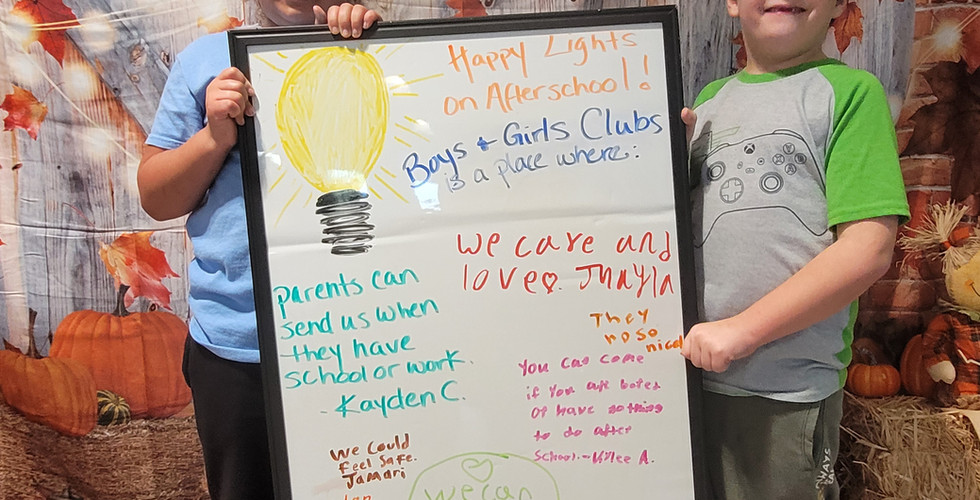 Happy Lights
on Afterschool!
Boys + Girls Clubs
is a place where:
we care and
love. Jhayla
parents can
send us when
they have
school or work.
- Kayden C.
They
nice
You can come
if You are bored
or have nothing
to do after
School. - Kylee A.
We Could
Feel Safe.
Jamari
we can